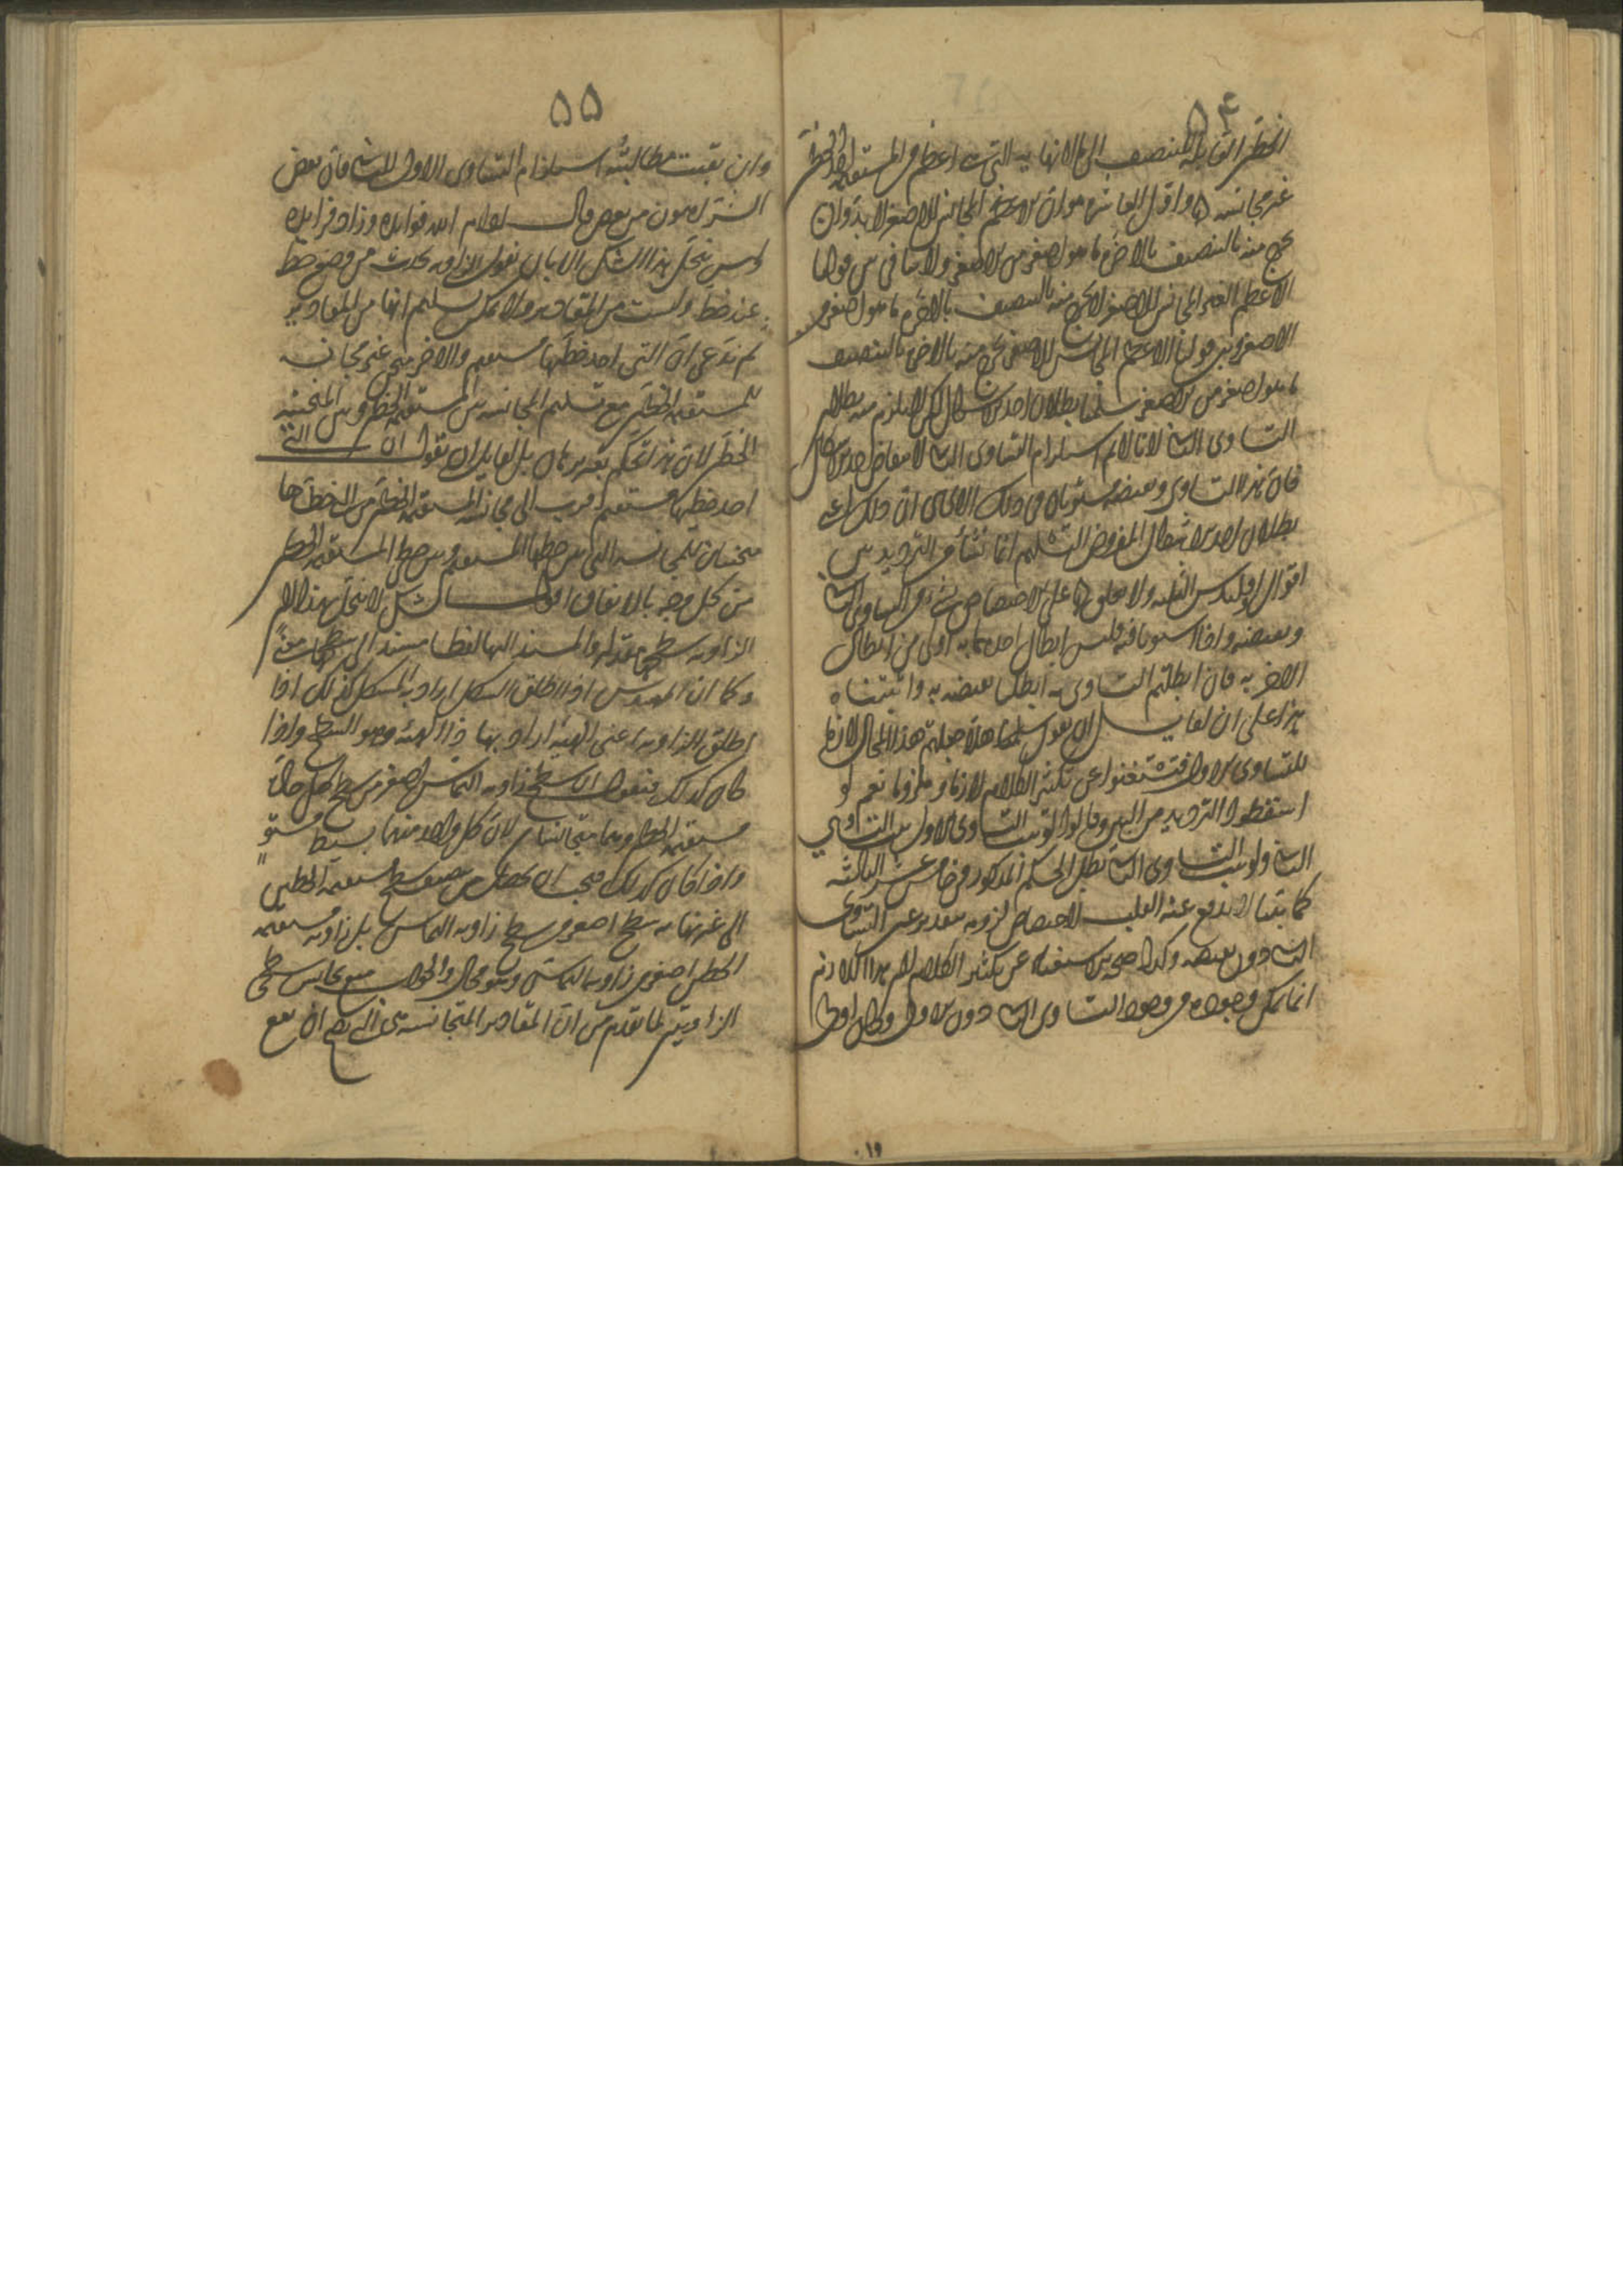 ٥٤
الخطين القابلة للتنصيف الى لا نهاية التى هى اعظم من المستقيمة الخطين
غير مجانسه واقول العاشر هو ان الاعظم المجانس للاصغر لا بد وان
يخرج منه بالتنصيف بالاخرة ما هو اصغر من الاصغر ولا تنافى بين قولنا
الاعظم الغير المجانس للاصغر لا يخرج منه بالتنصيف بالاخرة ما هو اصغر من
الاصغر وبين قولنا الاعظم المجانس للاصغر يخرج منه بالاخرة بالتنصيف
ما هو اصغر من الاصغر سلمنا بطلان احد الاشكال لكن لا يلزم منه بطلان
التساوى الثانى لانا لا نسلم استلزام التساوى الثانى لا
فان هذا التساوى ونقيضه مستويان فى ذلك الا ان ذلك اعنى
بطلان احد الاشكال المفروض التسليم انما نشأ من الترديد بين
اقوال اوقليدس الثلثة ولا على الاختصاص بشئ من التساوى الثانى
ونقيضه واذا استويا فيه فليس ابطال احدهما به اولى من ابطال
الاخر به فان ابطلتم التساوى به ابطلنا نقيضه به واثبتناه
هذا على ان لقائل ان يقول سلمنا هلا جعلتم هذا المحال لازما
للتساوى الاول فتستغنوا عن تكثير الكلام لازما وملزوما نعم لو
اسقطوا الترديد من البين وقالوا لو ثبت التساوى الاول ثبت التساوى
الثانى ولو ثبت التساوى الثانى بطل الحكم المذكور فى خامس عشر الثالثة
كما بينا لاندفع عنه لاختصاص لزومه التساوى
الثانى دون نقيضه وكذا الاستغناء عن تكثير الكلام لان هذا الكلام
انما يمكن وجوده من وجود التساوى الثانى دون الاول وكان
٥٥
وان بقيت مطالبته استلزام التساوى الاول للثانى فان بعض
الشر اهون من بعض قال ادام الله فوايده وزاد فرايده
وليس ينحل هذا الشكل الا بان نقول الزاوية تحدث من وضع خط
عند خط وليست من المقادير ولا يمكن تسليم انها من المقادير
ثم ندعى ان التى احد خطيها مستقيم والاخر منحن غير مجانسة
للمستقيمة الخطين مع تسليم المجانسة بين المستقيمة الخطين وبين المنحنية
الخطين لان هذا تحكم بغير برهان بل لقايل ان يقول ان التى
احد خطيها مستقيم اقرب الى مجانسة المستقيمة الخطين من التى خطاها
منحنيان للمجانسة التى بين خطها المستقيم وبين خط المستقيمة الخطين
من كل وجه بالاتفاق اقول الشكل لا ينحل بهذا لان
الزاوية سطح عند والمستند اليها لفظا مستند الى سطحها معنى
وكما ان المهندس اذا اطلق الشكل اراد به المشكل كذلك اذا
اطلق الزاوية اعنى الهيئة اراد بها ذا الهيئة وهو السطح واذا
كان كذلك فنقول ان سطح زاوية التماس اصغر من سطح كل حادة
مستقيمة الخطين وهما متجانسان لان كل واحد منهما بسيط مستو
واذا كان كذلك فيجب ان يحصل من تنصيف سطح مستقيمة الخطين
الى غير نهاية سطح اصغر من سطح زاوية التماس بل زاوية مستقيمة
الخطين اصغر من زاوية التماس وهو محال والجواب منع تجانس سطحى
الزاويتين لما تقدم من ان المقادير المتجانسة هى التى يصح ان يقع
١٠